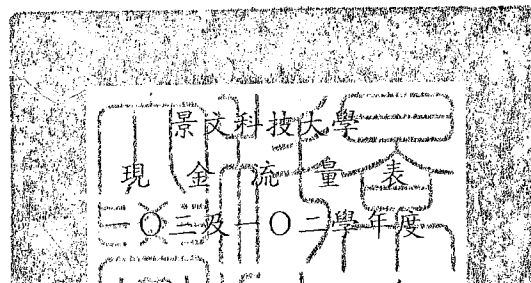 景文科技大學
現金流量表
一〇三及一〇二學年度